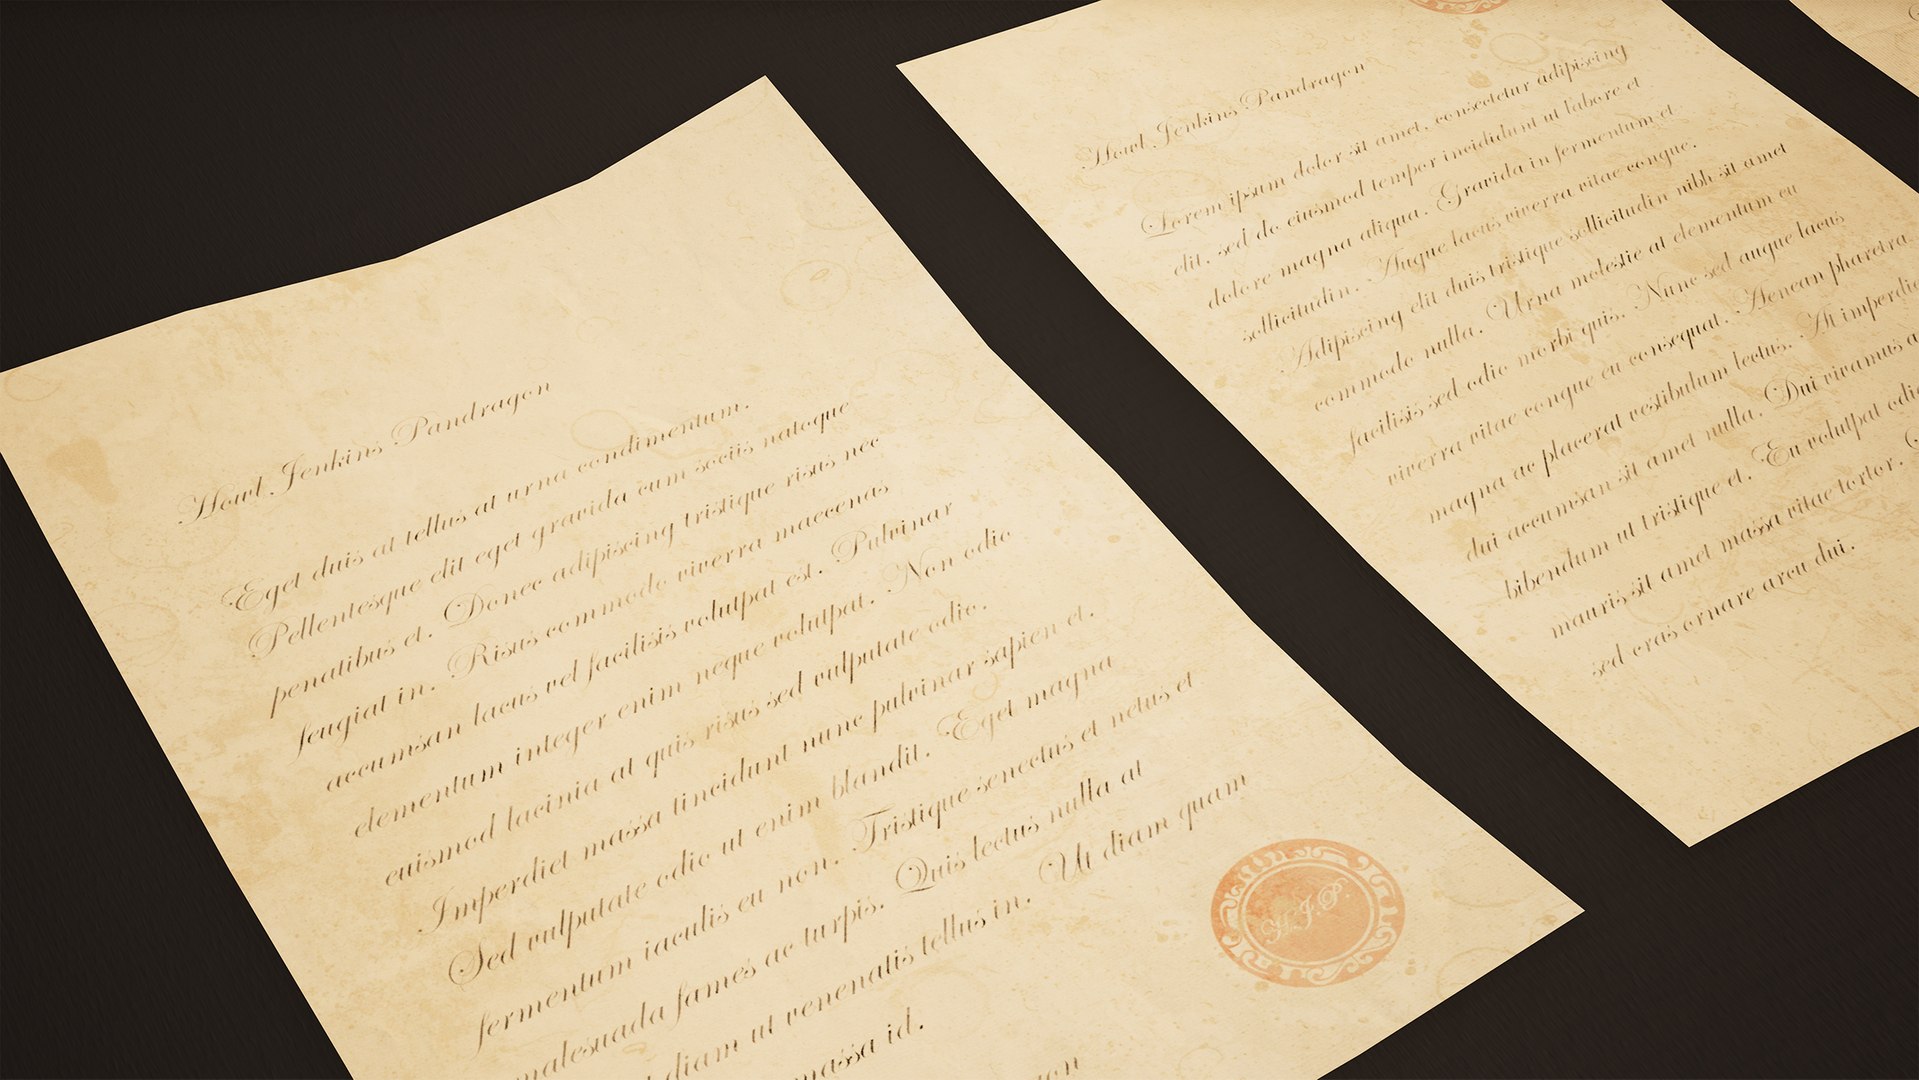 Howl Jenkins Pandragon
Eget duis at tellus at urna condimentum.
Pellentesque elit eget gravida cum sociis natoque
penatibus et. Donec adipiscing tristique risus nec
feugiat in. Risus commodo viverra maecenas
accumsan lacus vel facilisis volutpat est. Pulvinar
elementum integer enim neque volutpat. Non odio
euismod lacinia at quis risus sed vulputate odio.
Imperdiet massa tincidunt nunc pulvinar sapien et.
Sed vulputate odio ut enim blandit. Eget magna
fermentum iaculis eu non. Tristique senectus et netus et
malesuada fames ac turpis. Quis lectus nulla at
diam ut venenatis tellus in. Ut diam quam
massa id.
H.J.P.
Howl Jenkins Pandragon
Lorem ipsum dolor sit amet, consectetur adipiscing
elit, sed do eiusmod tempor incididunt ut labore et
dolore magna aliqua. Gravida in fermentum et
sollicitudin. Augue lacus viverra vitae congue.
Adipiscing elit duis tristique sollicitudin nibh sit amet
commodo nulla. Urna molestie at elementum eu
facilisis sed odio morbi quis. Nunc sed augue lacus
viverra vitae congue eu consequat. Aenean pharetra
magna ac placerat vestibulum lectus. At imperdie
dui accumsan sit amet nulla. Dui vivamus a
bibendum ut tristique et. Eu volutpat odio
mauris sit amet massa vitae tortor.
sed cras ornare arcu dui.